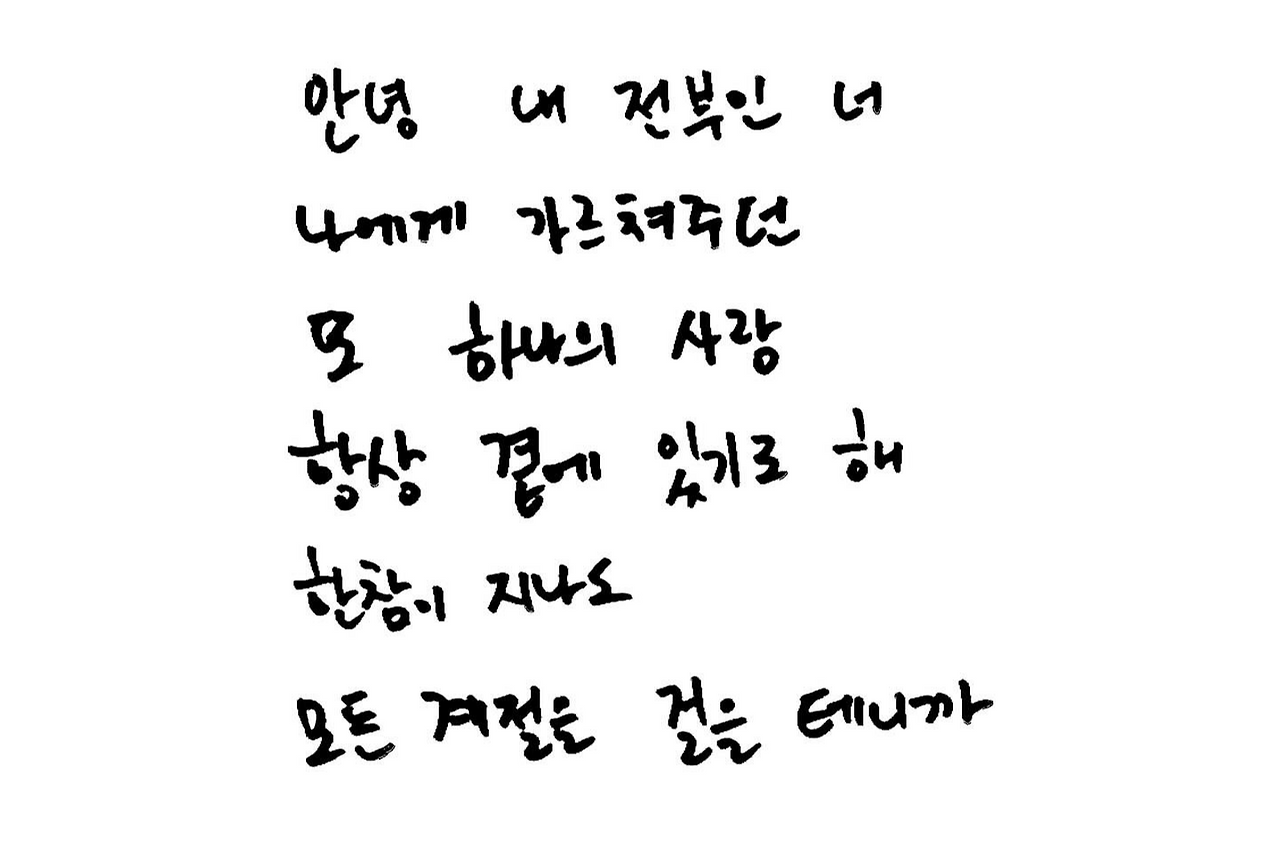 안녕 내 전부인 너
나에게 가르쳐주던
또 하나의 사랑
항상 곁에 있기로 해
한참이 지나도
모든 계절을 걸을 테니까